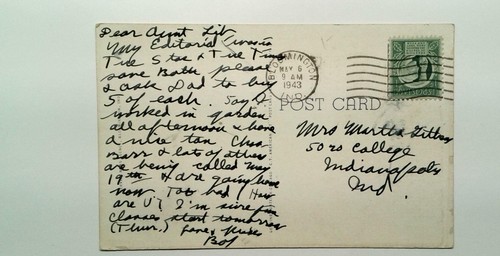 Dear Aunt Lib
My Editorial
The Star & The Times
save Both please
& ask Dad to buy
5 of each. Say I
worked in garden
all afternoon & have
a nice tan
& lots of others
are being called
19th & are going home
now. Too bad! How
are U? I'm sure
classes start tomorrow
(Thur.) Love
Bob
BLOOMINGTON
MAY 6
9 AM
1943
IND.
POST CARD
Mrs Martha
5020 College
Indianapolis
Ind.